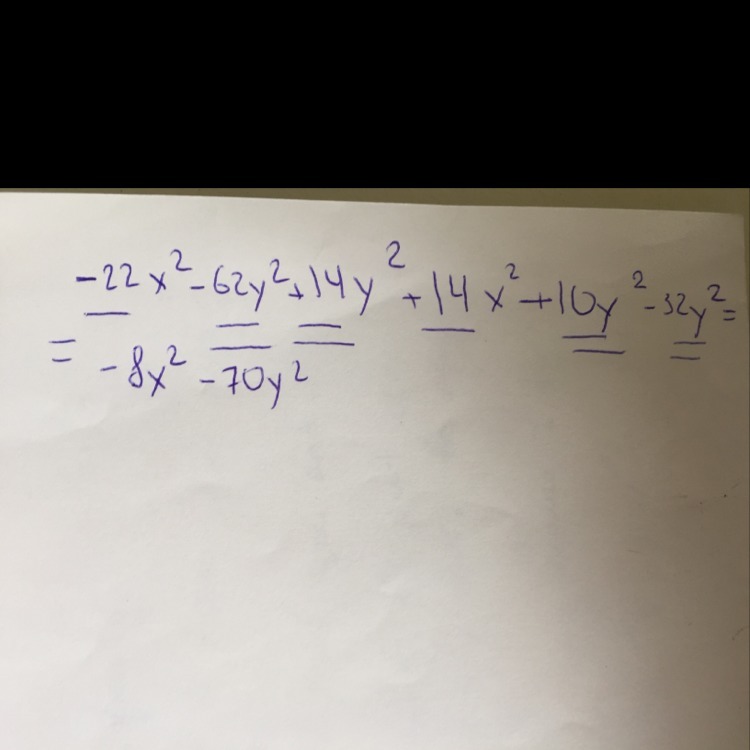 -22x² - 62y² + 14y² + 14x² + 10y² - 32y² =
= -8x² - 70y²